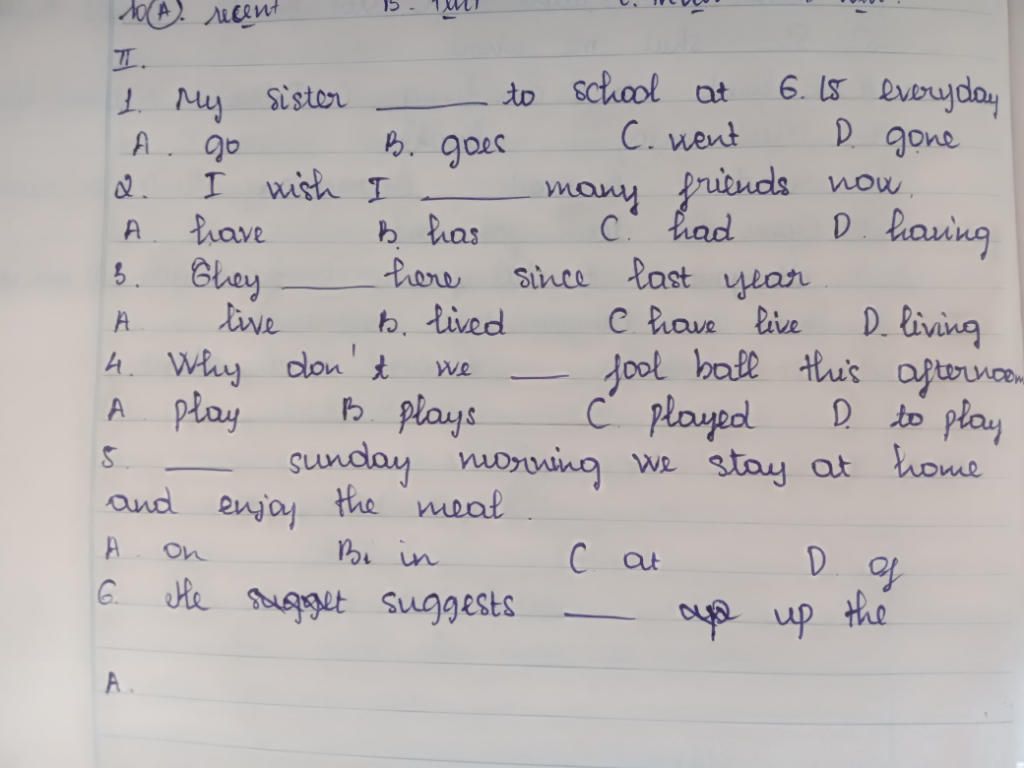 10 (A). recent B.
II.
1. My sister ______ to school at 6.15 everyday
A. go B. goes C. went D. gone
2. I wish I ______ many friends now.
A. have B. has C. had D. having
3. They ______ here since last year.
A live B. lived C have live D. living
4. Why don't we ___ fool ball this afternoon
A play B plays C played D. to play
5. ____ sunday morning we stay at home
and enjoy the meal.
A on B. in C at D of
6. He suggests ____ up the
A.